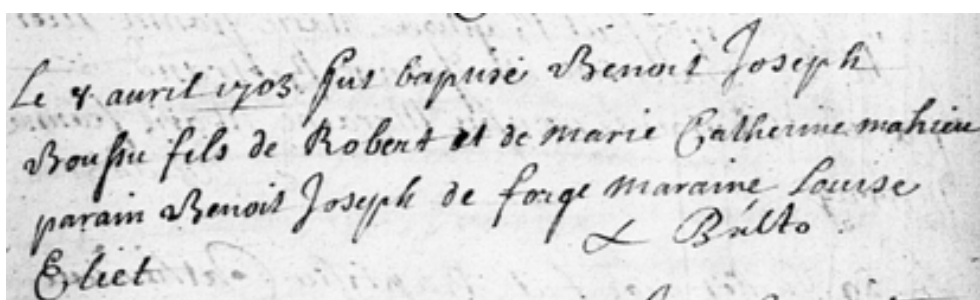 Le 8 avril 1703 fut baptisé Benoit Joseph
Boussu fils de Robert et de marie Catherine mahieu
parain Benoit Joseph de forge maraine Louise
Eliet